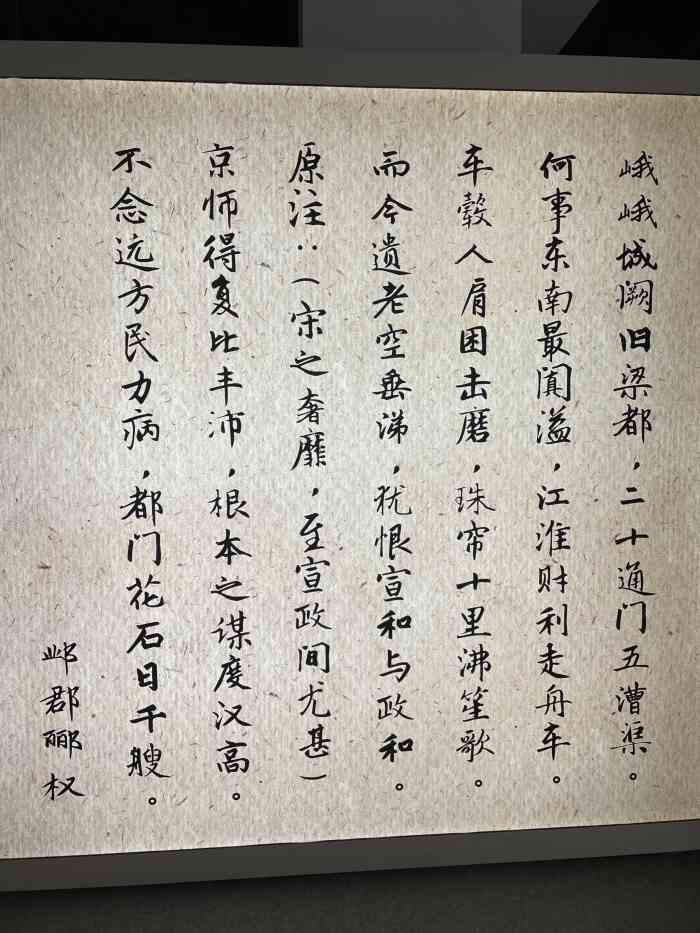 峨峨城阙旧梁都，二十通门五漕渠。
何事东南最阗溢，江淮财利走舟车。
车毂人肩困击磨，珠帘十里沸笙歌。
而今遗老空垂涕，犹恨宣和与政和。
原注：（宋之奢靡，至宣政间尤甚）
京师得复比丰沛，根本之谋度汉高。
不念远方民力病，都门花石日千艘。
邺郡郦权